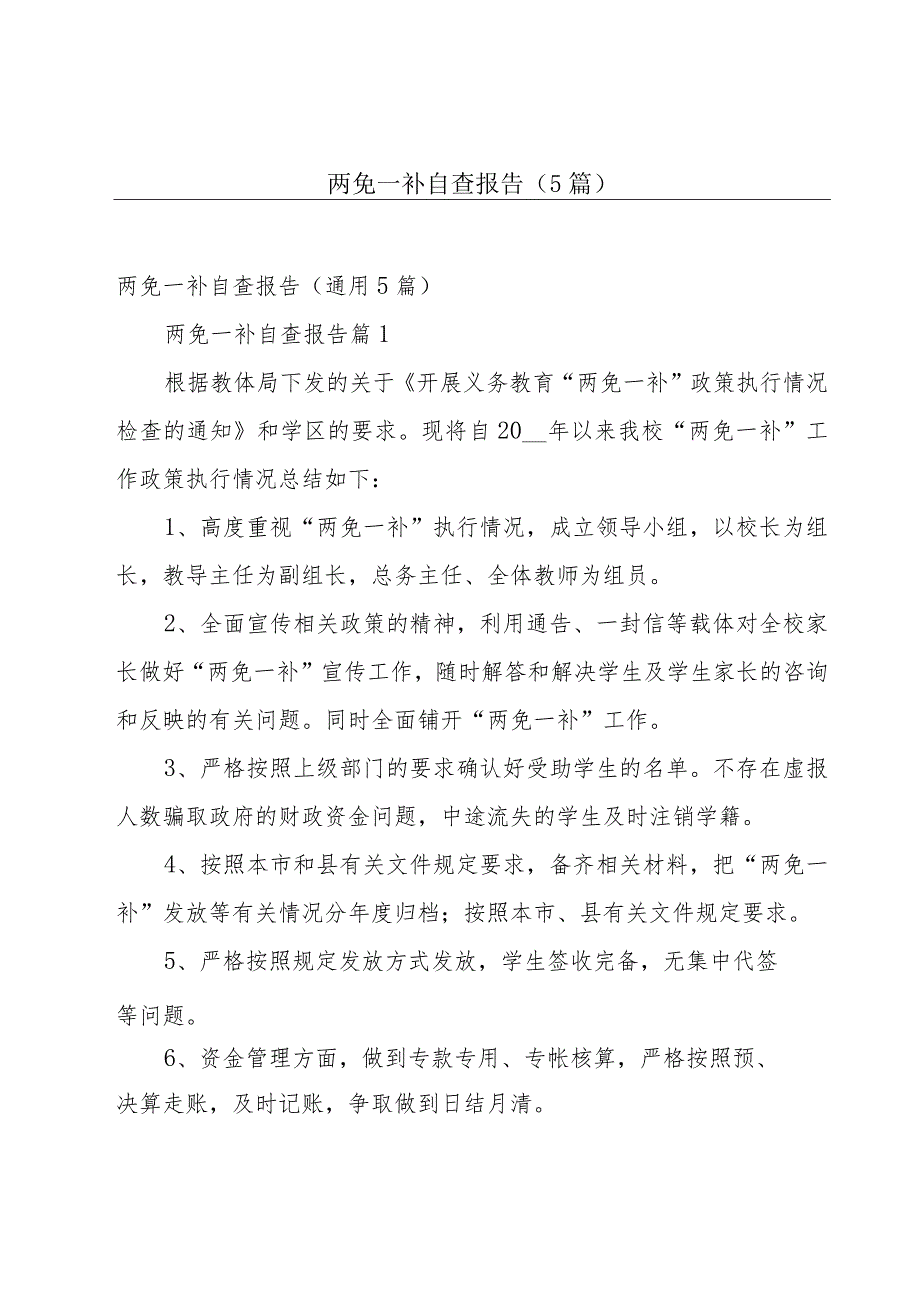 两免一补自查报告（5 篇）
两免一补自查报告（通用 5 篇）
两免一补自查报告篇 1
根据教体局下发的关于《开展义务教育“两免一补”政策执行情况
检查的通知》和学区的要求。现将自 20__年以来我校“两免一补”工
作政策执行情况总结如下：
1、高度重视“两免一补”执行情况，成立领导小组，以校长为组
长，教导主任为副组长，总务主任、全体教师为组员。
2、全面宣传相关政策的精神，利用通告、一封信等载体对全校家
长做好“两免一补”宣传工作，随时解答和解决学生及学生家长的咨询
和反映的有关问题。同时全面铺开“两免一补”工作。
3、严格按照上级部门的要求确认好受助学生的名单。不存在虚报
人数骗取政府的财政资金问题，中途流失的学生及时注销学籍。
4、按照本市和县有关文件规定要求，备齐相关材料，把“两免一
补”发放等有关情况分年度归档；按照本市、县有关文件规定要求。
5、严格按照规定发放方式发放，学生签收完备，无集中代签
等问题。
6、资金管理方面，做到专款专用、专帐核算，严格按照预、
决算走账，及时记账，争取做到日结月清。